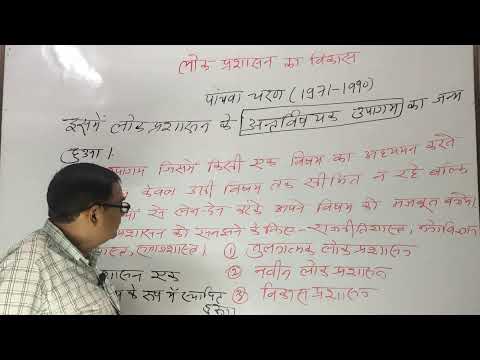 लोक प्रशासन का विकास
पांचवा चरण (1971-1990)
इसमें लोक प्रशासन के अन्तर्विषयक उपागम का जन्म
हुआ।
उपागम जिसमें किसी एक विषय का अध्ययन करते
केवल उसी विषय तक सीमित न रहे बल्कि
से लेन-देन करके अपने विषय को मजबूत करेंगे।
प्रशासन को समझने के लिए - राजनीतिशास्त्र, मनोविज्ञान
① तुलनात्मक लोक प्रशासन
प्रशासन एक ② नवीन लोक प्रशासन
के रूप में स्थापित ③ विकास प्रशासन
हुआ।